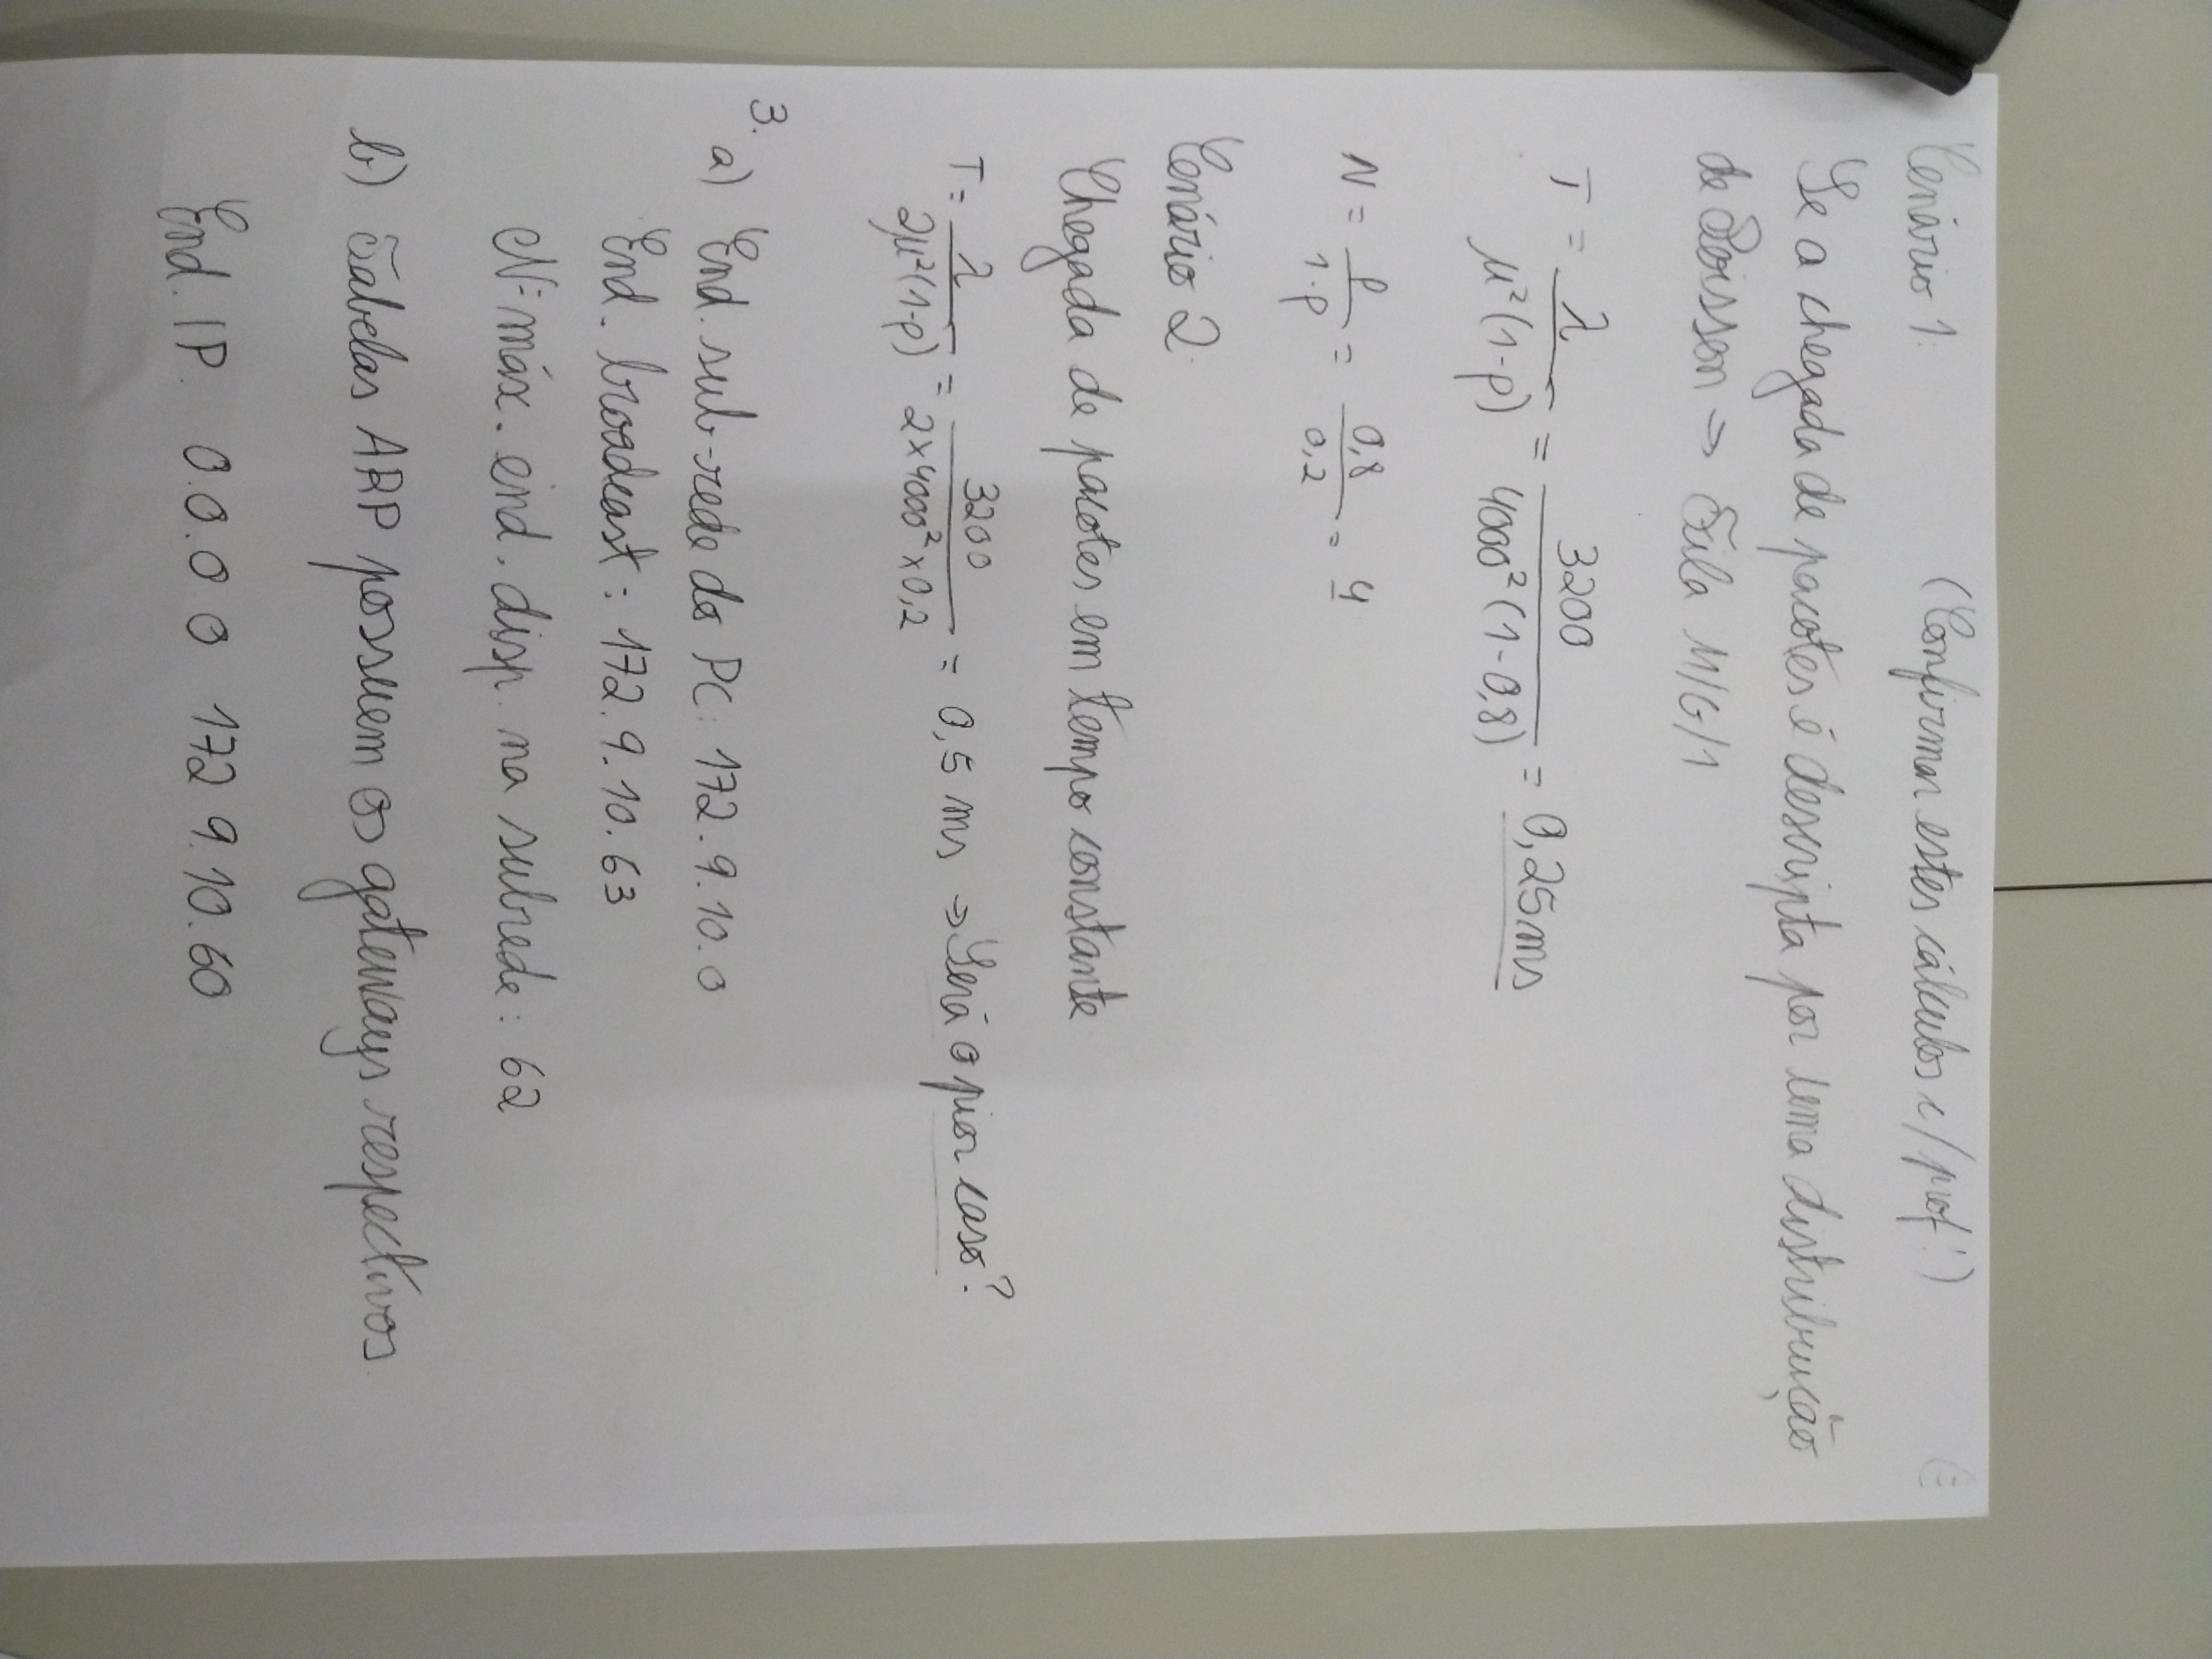 Cenário 1: (Confirmar estes cálculos c/prof!)
Se a chegada de pacotes é descripta por uma distribuição
de Poisson => Fila M/G/1
T = λ / μ²(1-ρ) = 3200 / 4000²(1-0,8) = 0,25ms
N = ρ / 1-ρ = 0,8 / 0,2 = 4
Cenário 2:
Chegada de pacotes em tempo constante
T = λ / 2μ²(1-ρ) = 3200 / 2×4000²×0,2 = 0,5 ms => Será o pior caso?
3. a) End. sub-rede do PC: 172.9.10.0
End. broadcast: 172.9.10.63
Nº máx. end. disp. na subrede: 62
b) Tabelas ARP possuem os gateways respectivos
End. IP 0.0.0 0 172 9.10.60